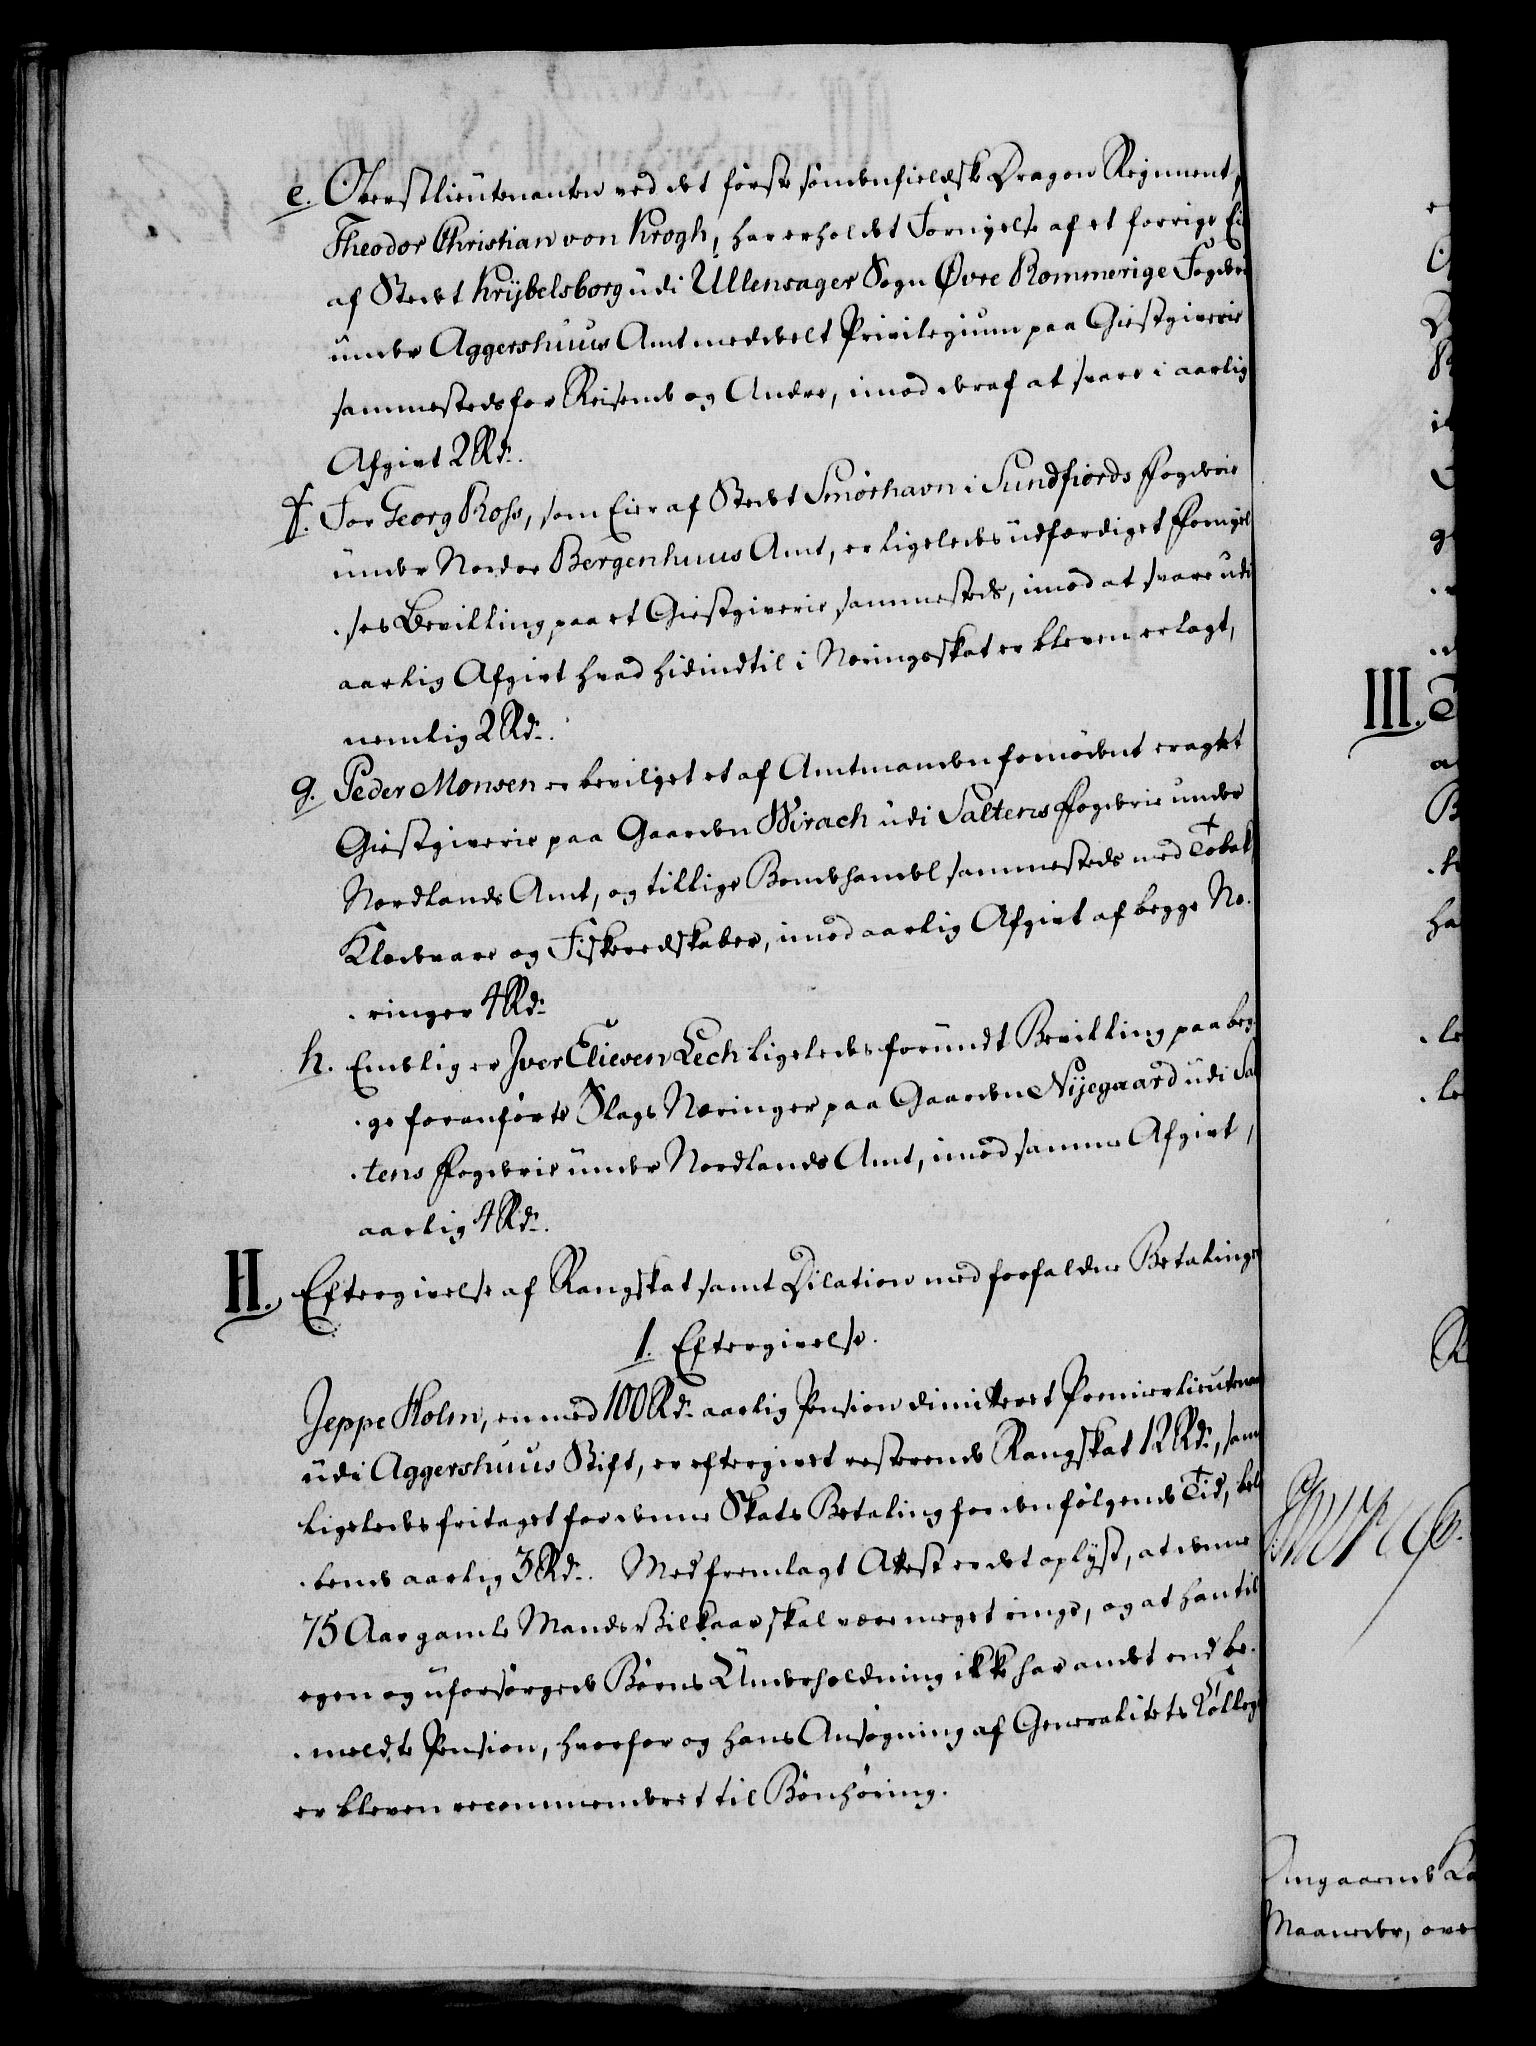 e. Oberstlieutenanten ved det første søndenfieldske Dragon Regiment,
Theodor Christian von Krogh, har erholdet Fornyelse af et forrige Ei
af Stedet Krybelsborg üdi Ullensager Sogn Øvre Rommerige Fogderi
ünder Aggershuus Amt meddeelt Privilegium paa Giestgiverie
sammesteds for Reisende og Andre, imod deraf at svare i aarlig
Afgivt 2 Rd.
f. For Georg Ross, som Eier af Stedet Smørhavn i Sundfiords Fogderie
ünder Nordre Bergenhuus Amt, er ligeledes üdfærdiget Fornyel
ses Bevilling paa et Giestgiverie sammesteds, imod at svare udi
aarlig Afgivt hvad hidindtil i Næringsskat er bleven erlagt,
nemlig 2 Rd.
g. Peder Monsen er bevilget et af Amtmanden fornødent eragtet
Giestgiverie paa Gaarden Wirach üdi Saltens Fogderie under
Nordlands Amt, og tillige Bondehandel sammesteds med Tobak,
Klædevare og Fiskeredskaber, imod aarlig Afgivt af begge Næ-
ringer 4 Rd.
h. Endelig er Jver Eliesen Lech ligeledes forundt Bevilling paa beg-
ge foranførte Slags Næringer paa Gaarden Nyegaard üdi Sal
tens Fogderie ünder Nordlands Amt, imod samme Afgivt,
aarlig 4 Rd.
II. Eftergivelse af Rangskat samt Dilation med forfaldne Betalinge
1. Eftergivelse.
Jeppe Holm, en med 100 Rd. aarlig Pension dimitteret Premierlieutenan
üdi Aggershuus Stift, er eftergivet resterende Rangskat 12 Rd., sam
ligeledes fritaget for denne Skats Betaling for den følgende Tid, belø
bende aarlig 3 Rd. Med fremlagt Attest er det oplyst, at denne
75 Aar gamle Mands Vilkaar skal være meget ringe, og at han til
egen og üforsørgede Børns Ünderholdning ikke har andet end be-
meldte Pension, hvorfor og hans Ansøgning af Generalitets Colleg
er bleven recommenderet til Bønhøring.
III.
ha
Maaneder, ove